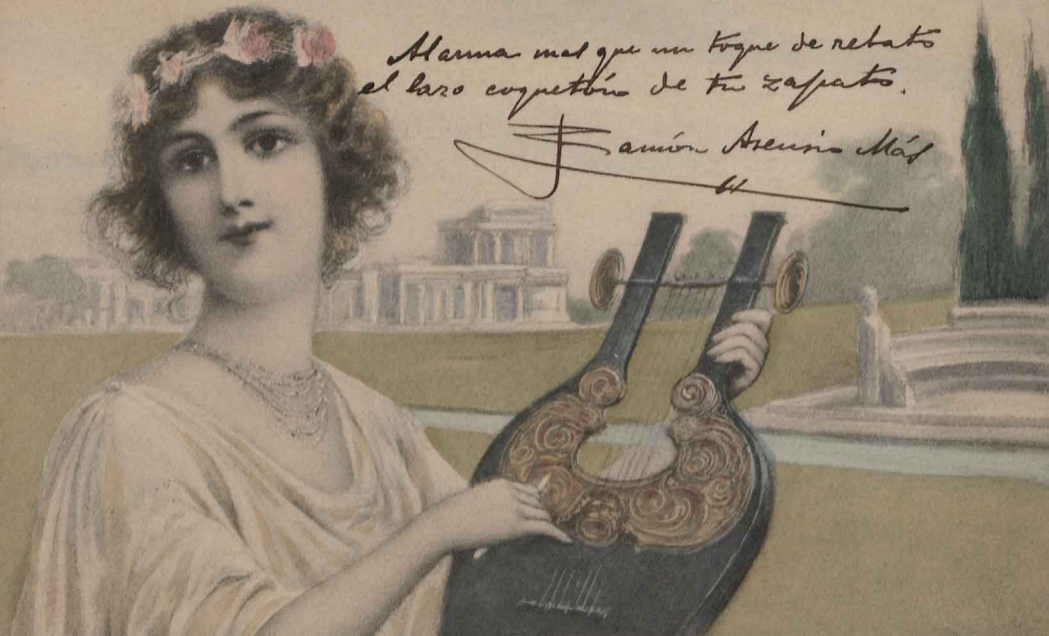 Alarma mas que un toque de rebato
el lazo coquetón de tu zapato.
Ramón Asensio Más